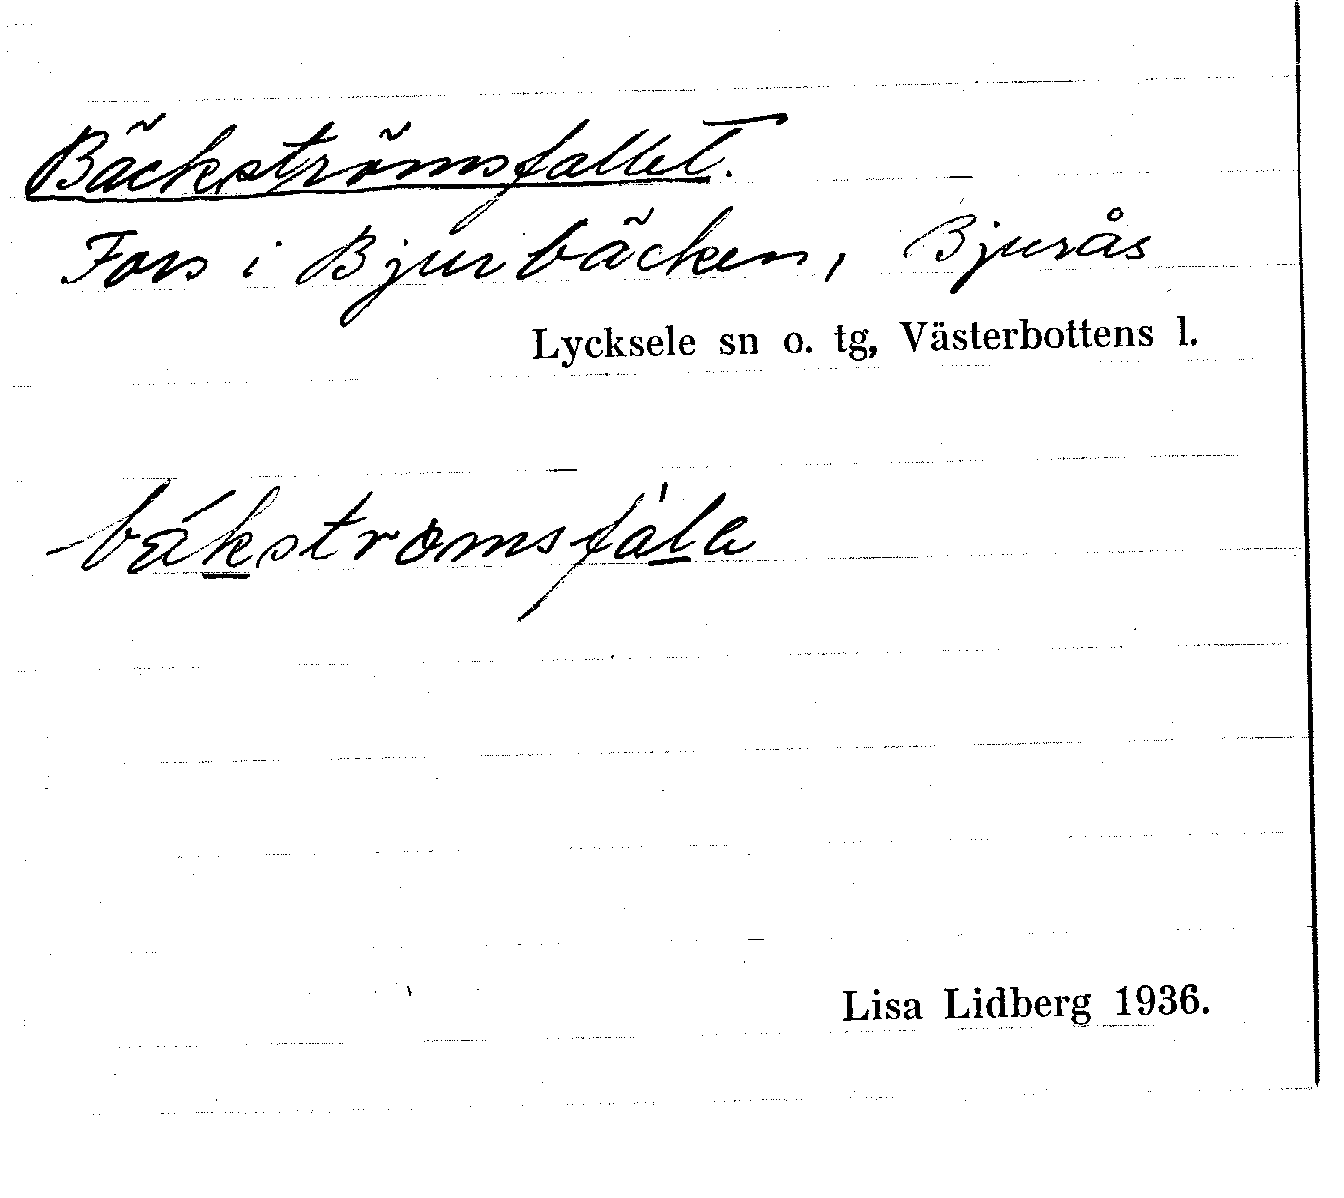 Bäckströmsfallet.
Fors i Bjurbäcken, Bjurås
Lycksele sn o. tg, Västerbottens l.
bákstromsfàla
Lisa Lidberg 1936.